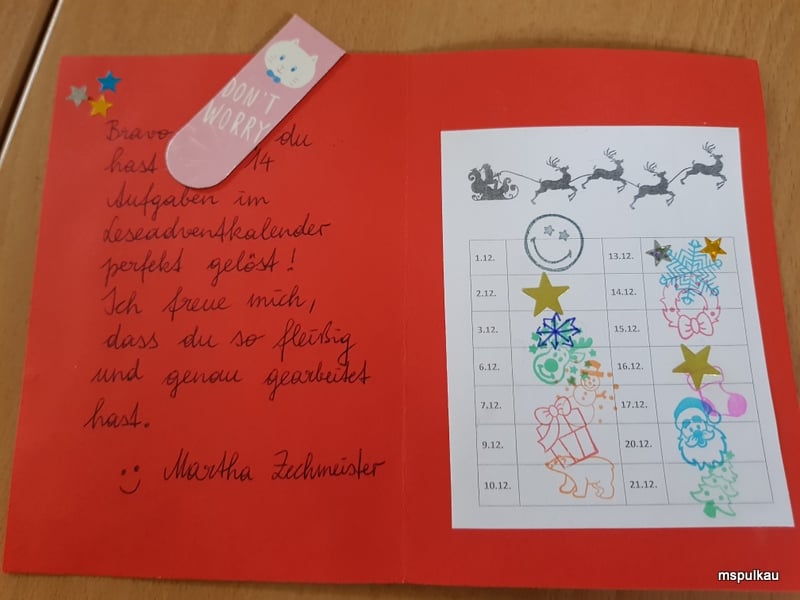 DON'T
WORRY
Bravo du
hast 14
Aufgaben im
Leseadventkalender
perfekt gelöst!
Ich freue mich,
dass du so fleißig
und genau gearbeitet
hast.
Martha Zechmeister
1.12. 13.12.
2.12. 14.12.
3.12. 15.12.
6.12. 16.12.
7.12. 17.12.
9.12. 20.12.
10.12. 21.12.
mspulkau